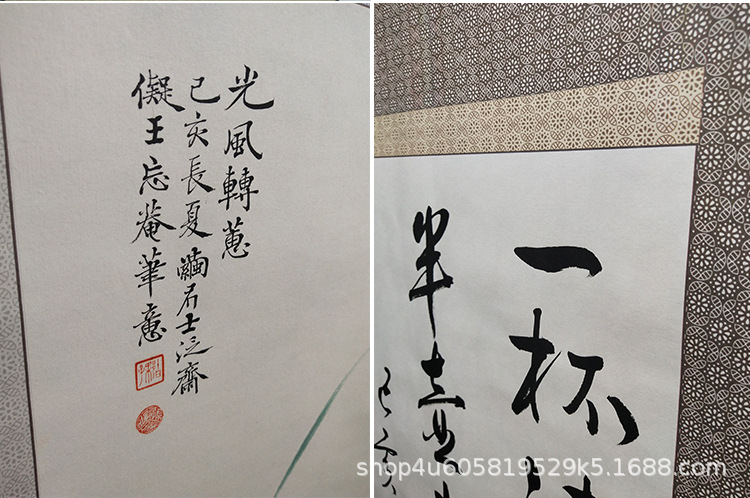 光風轉蕙
己亥長夏繭石士泛齋
儗王忘菴筆意
一杯
半壺
己亥
shop4u605819529k5.1688.com